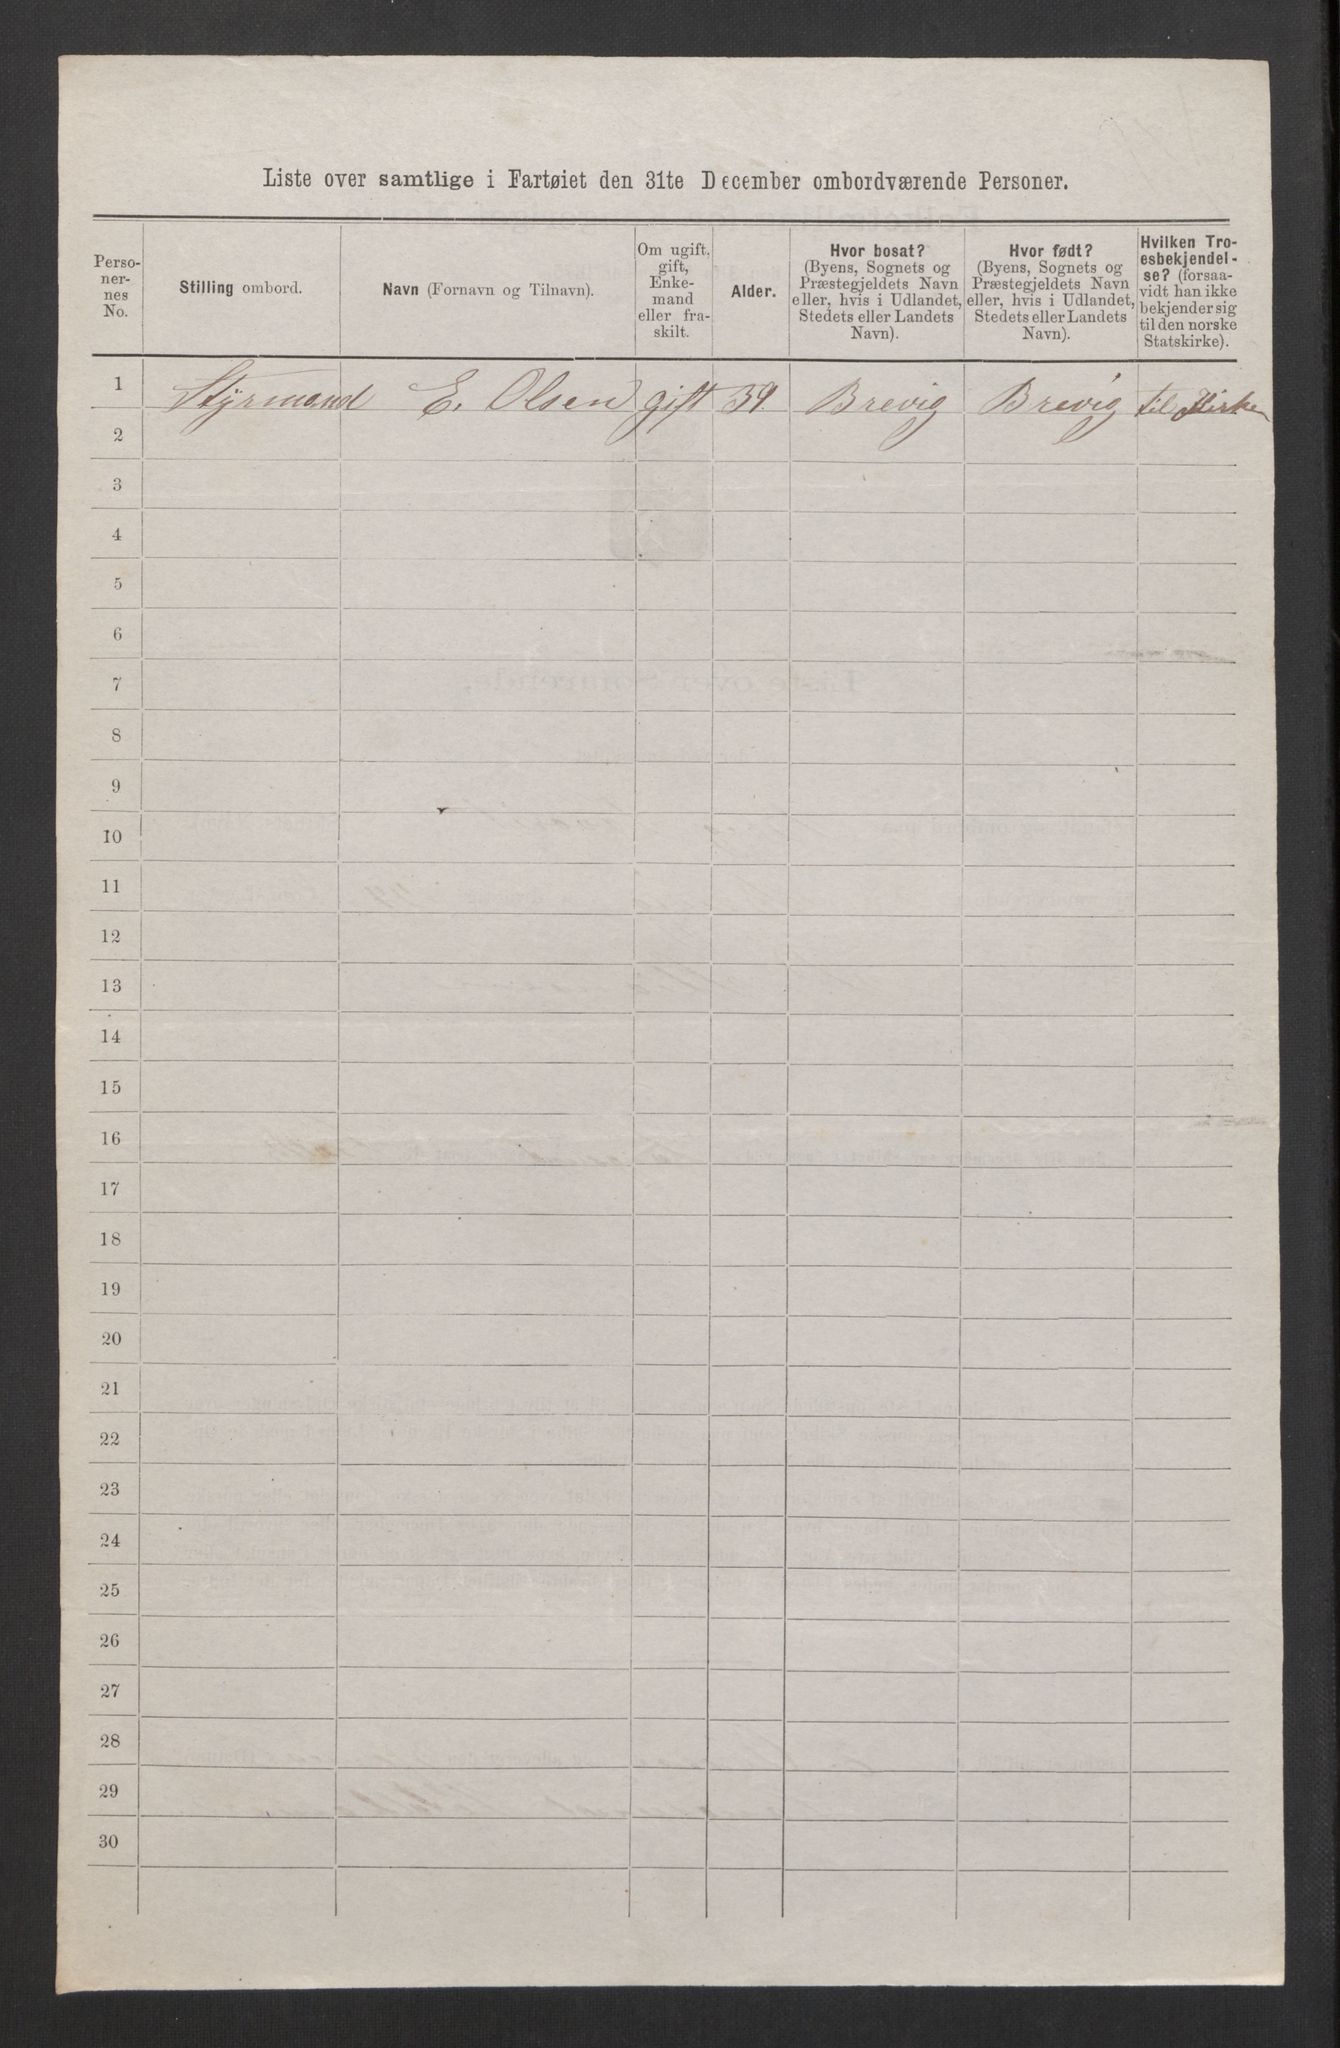 Liste over samtlige i Fartøiet den 31te December ombordværende Personer.
Perso-
ner-
nes
No.
Stilling ombord.
Navn (Fornavn og Tilnavn).
Om ugift,
gift,
Enke-
mand
eller fra-
skilt.
Alder.
Hvor bosat?
(Byens, Sognets og
Præstegjeldets Navn
eller, hvis i Udlandet,
Stedets eller Landets
Navn).
Hvor født?
(Byens, Sognets og
Præstegjeldets Navn
eller, hvis i Udlandet,
Stedets eller Landets
Navn).
Hvilken Tro-
esbekjendel-
se? (forsaa-
vidt han ikke
bekjender sig
til den norske
Statskirke).
1 Styrmand E. Olsen gift 39. Brevig Brevig til Kirken
2
3
4
5
6
7
8
9
10
11
12
13
14
15
16
17
18
19
20
21
22
23
24
25
26
27
28
29
30